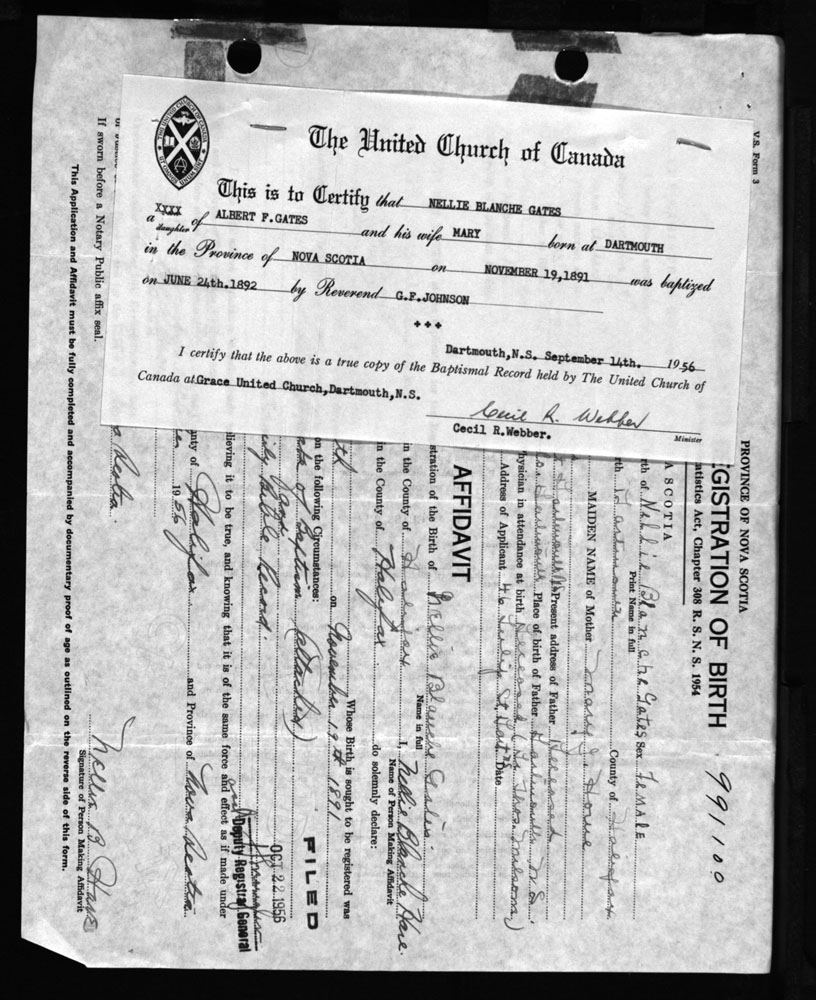 The United Church of Canada
This is to Certify that NELLIE BLANCHE GATES
a XXXX daughter of ALBERT F.GATES and his wife MARY born at DARTMOUTH
in the Province of NOVA SCOTIA on NOVEMBER 19,1891 was baptized
on JUNE 24th.1892 by Reverend G.F.JOHNSON
Dartmouth,N.S. September 14th. 1956
I certify that the above is a true copy of the Baptismal Record held by The United Church of
Canada at Grace United Church,Dartmouth,N.S.
Cecil R. Webber
Cecil R.Webber. Minister
V.S. Form 3
PROVINCE OF NOVA SCOTIA
GISTRATION OF BIRTH 991100
atistics Act, Chapter 308 R. S. N. S. 1954
A SCOTIA
rth of Nellie Blanche Gates Sex FEMALE
Print Name in full
rth Dartmouth County of Halifax
MAIDEN NAME of Mother Mary J.
Present address of Father Deceased
Dartmouth Place of birth of Father Dartmouth N.S.
hysician in attendance at birth Deceased
Address of Applicant 46 St. Date
AFFIDAVIT
stration of the Birth of Nellie Blanche Gates.
Name in full
in the County of Halifax I, Nellie Blanche Hare.
Name of Person Making Affidavit
in the County of Halifax do solemnly declare:
Whose Birth is sought to be registered was
on November 19th 1891
on the following Circumstances: FILED
of Baptism (attached)
and
Bible Record. OCT 22 1956
Deputy Registrar General
lieving it to be true, and knowing that it is of the same force and effect as if made under
nty of Halifax and Province of Nova Scotia
1956
Nellie B Hare
Signature of Person Making Affidavit
If sworn before a Notary Public affix seal.
This Application and Affidavit must be fully completed and accompanied by documentary proof of age as outlined on the reverse side of this form.